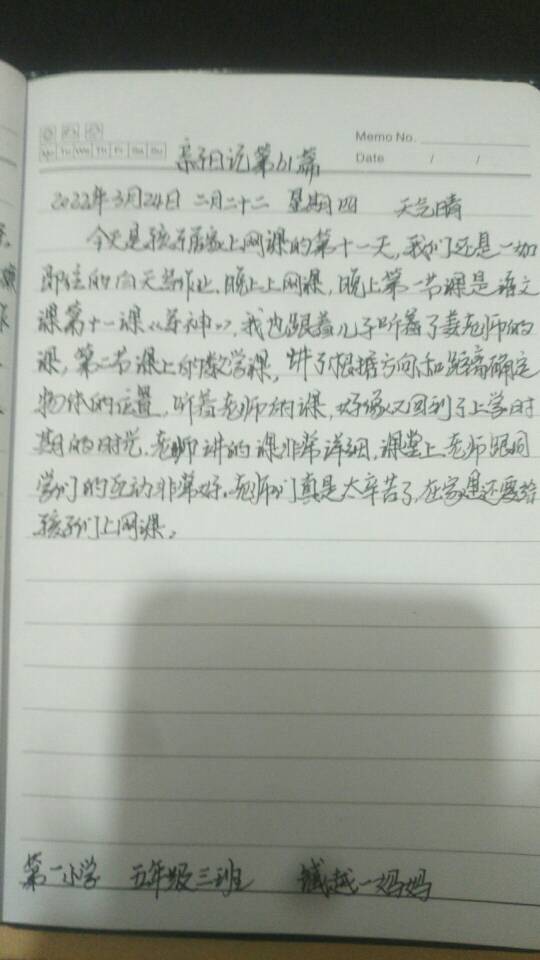 Memo No.
Mo Tu We Th Fr Sa Su
Date / /
亲子日记第61篇
2022年3月24日 二月二十二 星期四 天气晴
今天是孩子居家上网课的第十一天,我们还是一如
既往的白天写作业,晚上上网课,晚上第一节课是语文
课第十一课《军神》,我也跟着儿子听着了老师的
课,第二节课上的数学课,讲了根据方向和距离确定
物体的位置,听着老师的课,好像又回到了上学时
期的时光,老师讲的课非常详细,课堂上,老师跟同
学们的互动非常好,老师们真是太辛苦了,在家里还要给
孩子们上网课。
第一小学 五年级三班 越一妈妈